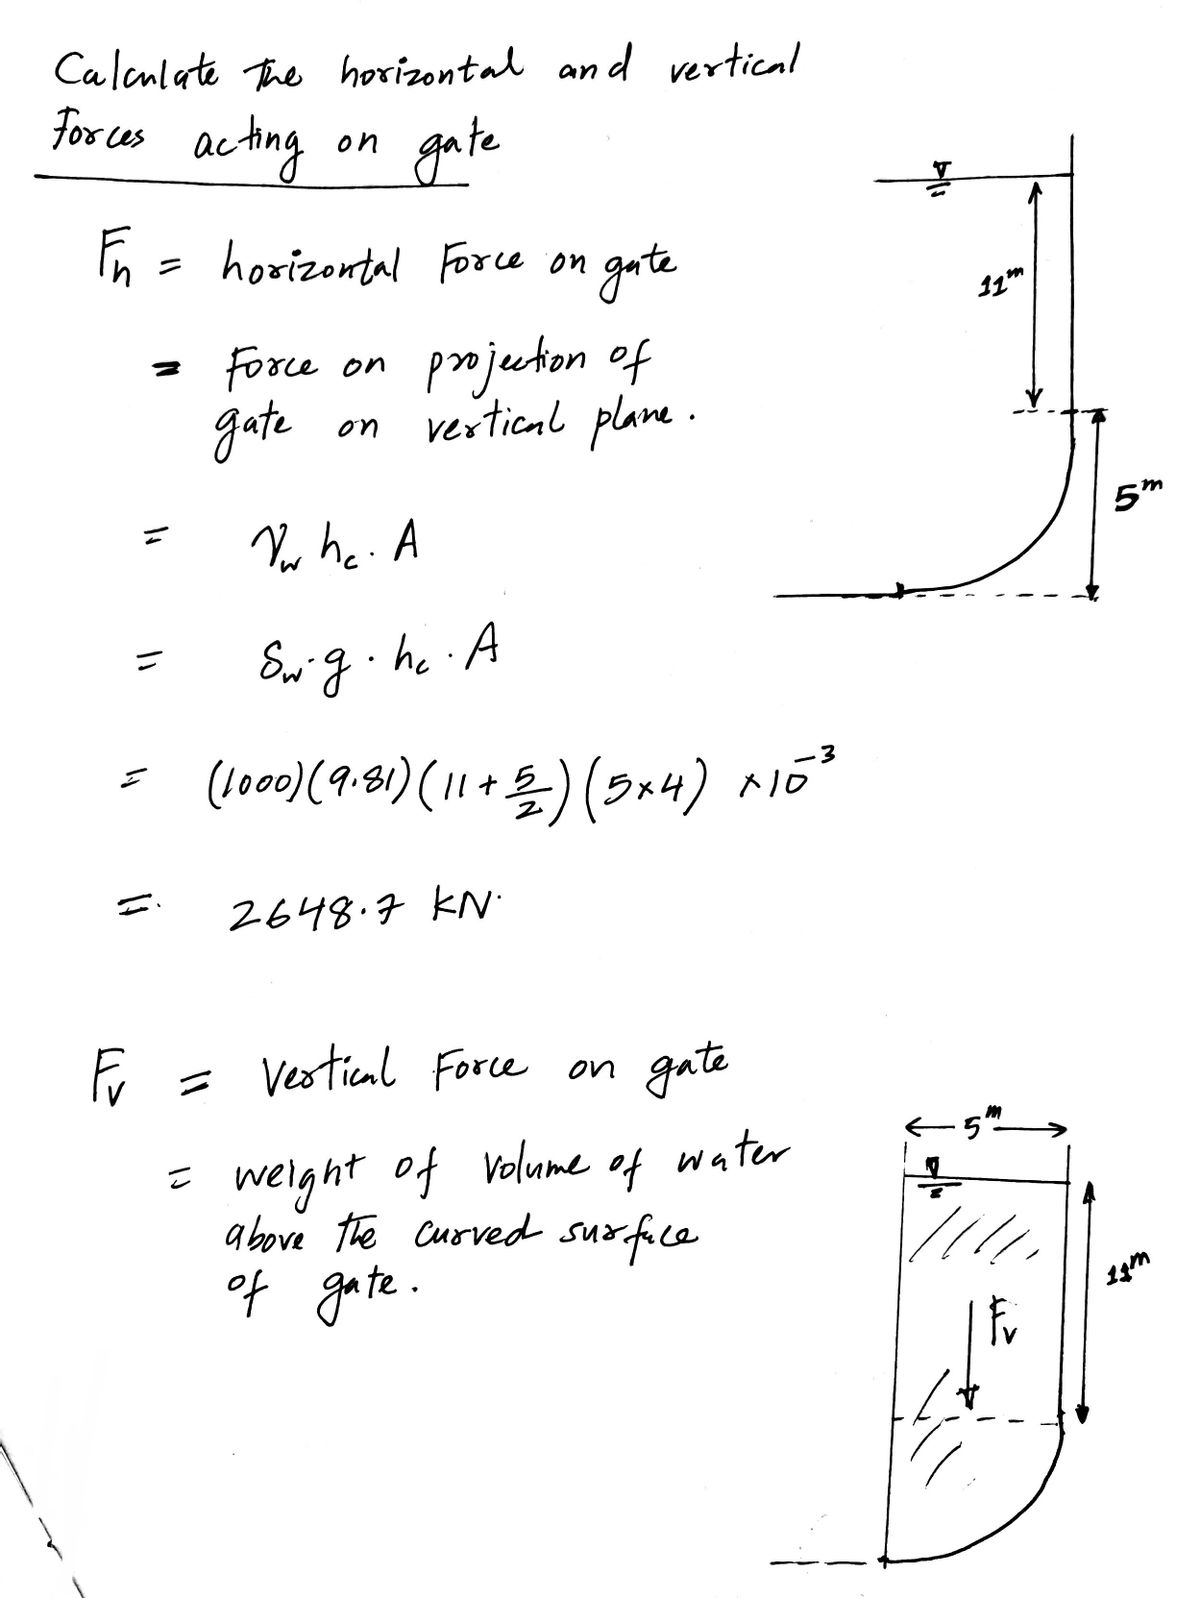 Calculate the horizontal and vertical
Forces acting on gate
11m
5m
Fh = horizontal Force on gate
= Force on projection of
gate on vertical plane.
= γw hc. A
= δw.g . hc . A
= (1000)(9.81)(11 + 5/2)(5×4) ×10^-3
= 2648.7 KN.
Fv = Vertical Force on gate
= weight of Volume of water
above the curved surface
of gate.
5m
11m
Fv